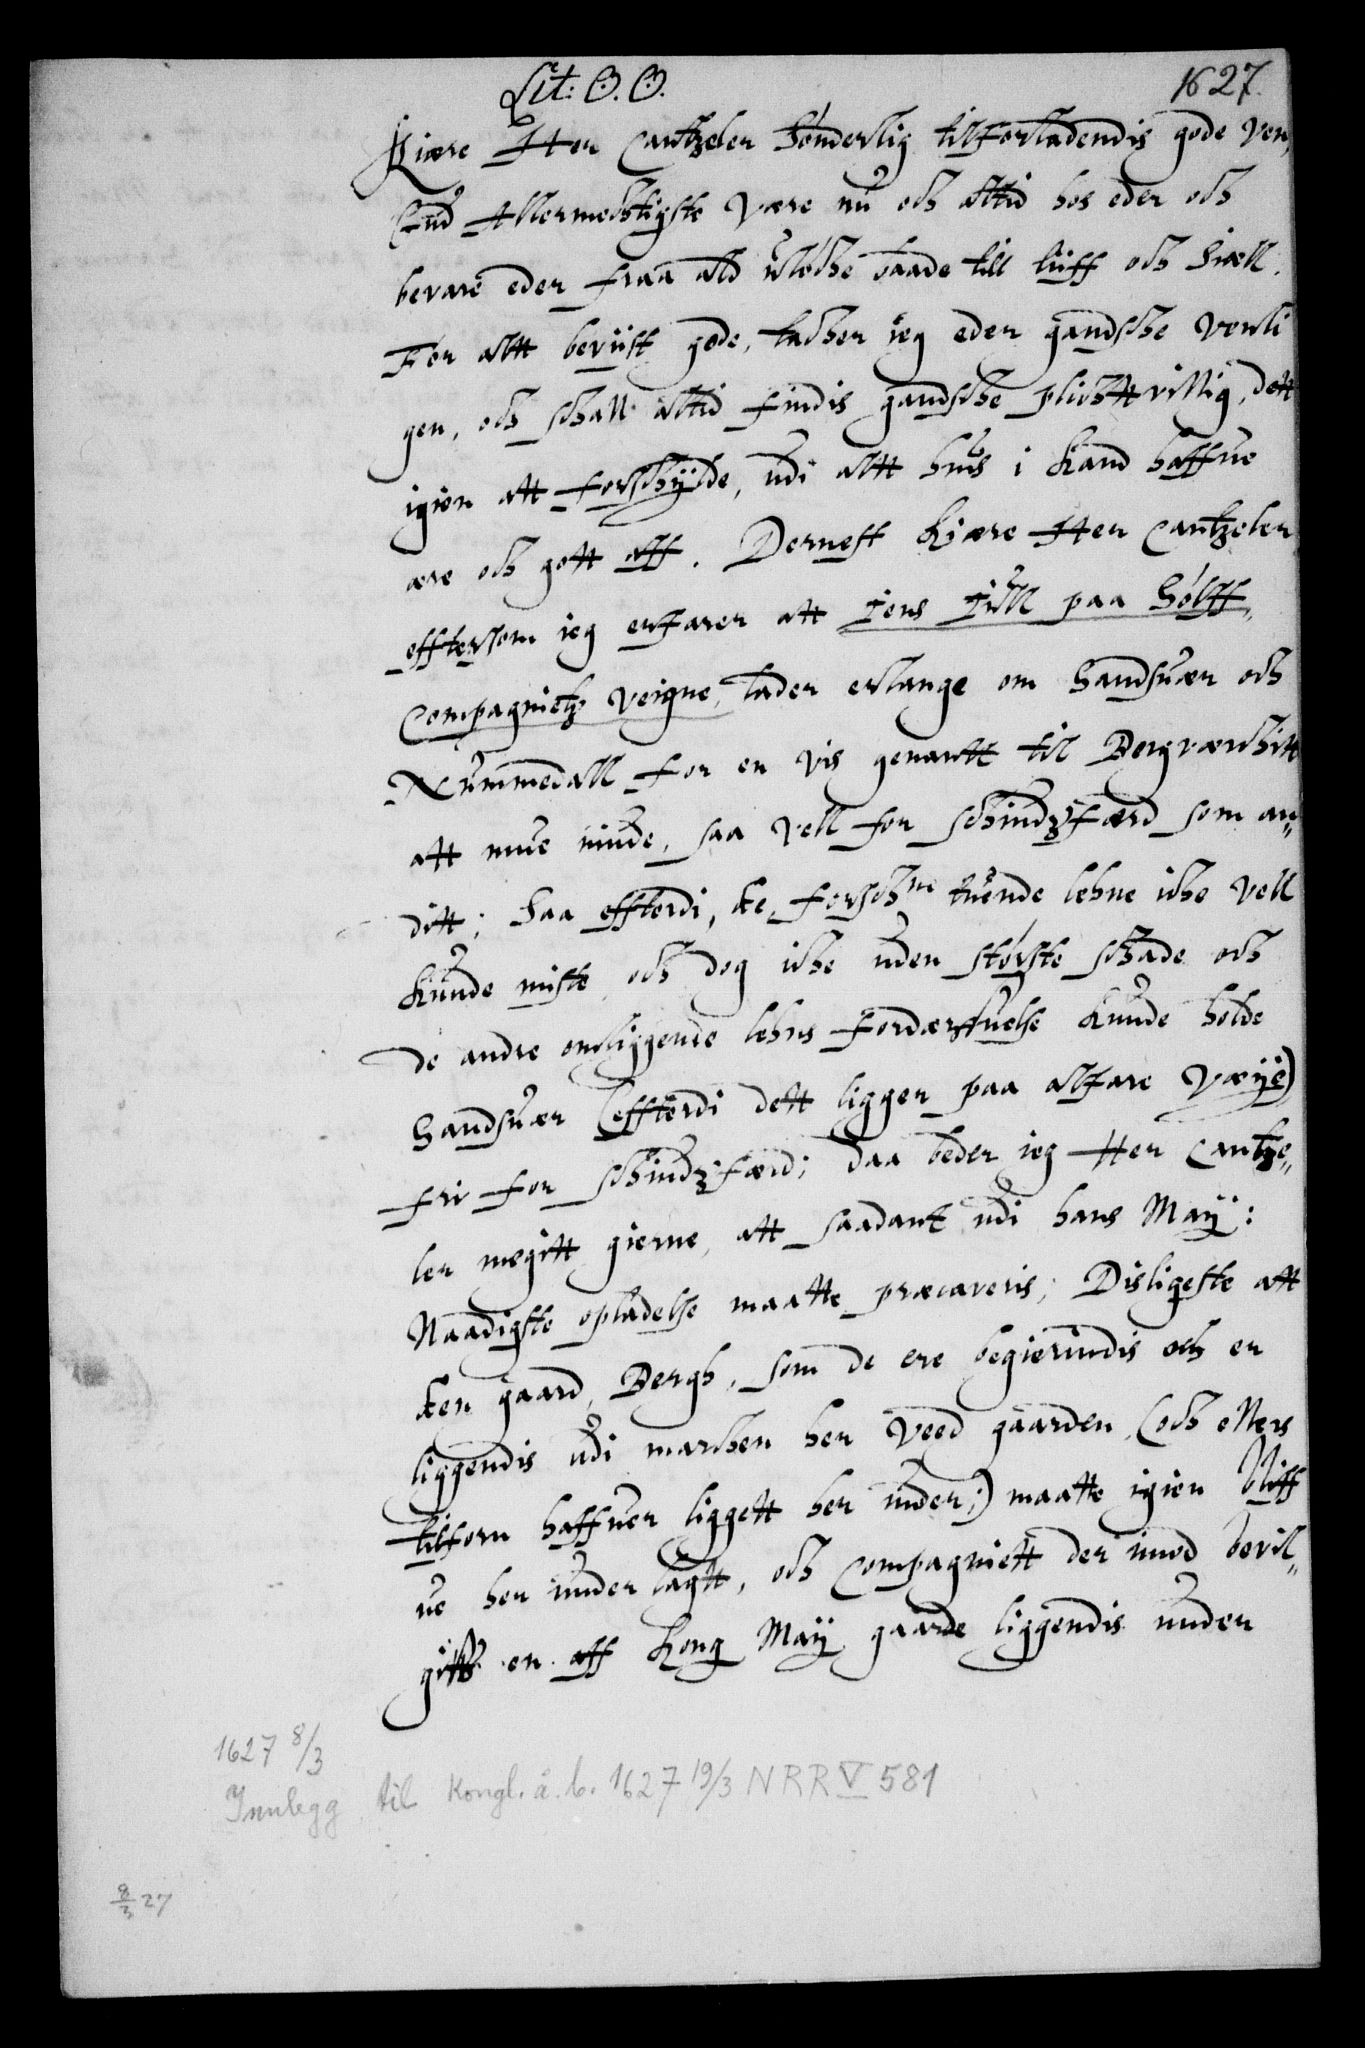 Lit: O. O.
1627.
Kiære Her Cantzeler Sønderlig tilforladendis gode Ven,
Gud Allermechtigste være nu och altid hos eder och
bevare eder fraa ald uløche baade till liiff och Siæll.
For altt beviist gode, tacher ieg eder gandsche venli
gen, och schall altid findis gandsche plichttvillig, dett
igien att forschÿlde, udi altt huis i kand haffue
ære och gott aff. Dernest kiære Her Cantzeler
efftersom ieg erfarer att Jens Juell paa Sølff
Compagnietz veigne, lader erlange om Sandsuær och
Nummedall for en vis genantt til Bergverchitt
att mue niude, saa vell for schiudzfærd som an„
ditt; Saa effterdi, ke forschne tuende lehne iche vell
kunde miste, och dog iche uden største schade och
de andre omliggende lehns fordærffuelse kunde holde
Sandsuær (effterdi dett ligger paa alfare Væÿe)
fri for schiudzfærd; daa beder ieg Her Cantze„
ler megitt gierne, att saadant udi hans Maÿ:
Naadigste opladelse maatte præcaveris; Disligeste att
den gaard, Bergh, som de ere begierindis och er
liggendis udi marchen her veed gaarden, (och ellers
tilforn haffuer liggett her under;) maatte igien bliff
ue her under lagtt, och Compagniett der imod bevil„
gitt en aff Kong Maÿ gaarde liggendis under
1627 8/3
Innlegg til Kongl. å. b. 1627 19/3 NRR V 581
8/3 27